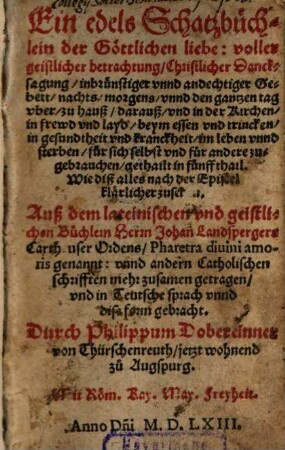 Ein edels Schatzbüch-
lein der Göttlichen liebe: voller
geistlicher betrachtung / Christlicher Danck-
sagung / inbrünstiger vnnd andechtiger Ge-
bett / nachts / morgens / vnnd den gantzen tag
vber / zu hauß / darauß / vnd in der Kirchen /
in frewd vnd layd / beym essen vnd trincken /
in gesundtheit vnd kranckheit / im leben vnnd
sterben / für sich selbst vnd für andere zu-
gebrauchen / gethailt in fünff thail.
Wie diß alles nach der Epistel
klärlicher zuseh
Auß dem lateinischen vnd geistli-
chen Büchlein Herrn Johañ Landspergers
Carth. user Ordens / Pharetra diuini amo-
ris genannt: vnnd andern Catholischen
schrifften mehr zusamen getragen /
vnd in Teutsche sprach vnnd
dise form gebracht.
Durch Philippum Dobereinner
von Thürschenreuth / jetzt wohnend
zu Augspurg.
Mit Röm. Kay. May. Freyheit.
Anno Dñi M. D. LXIII.